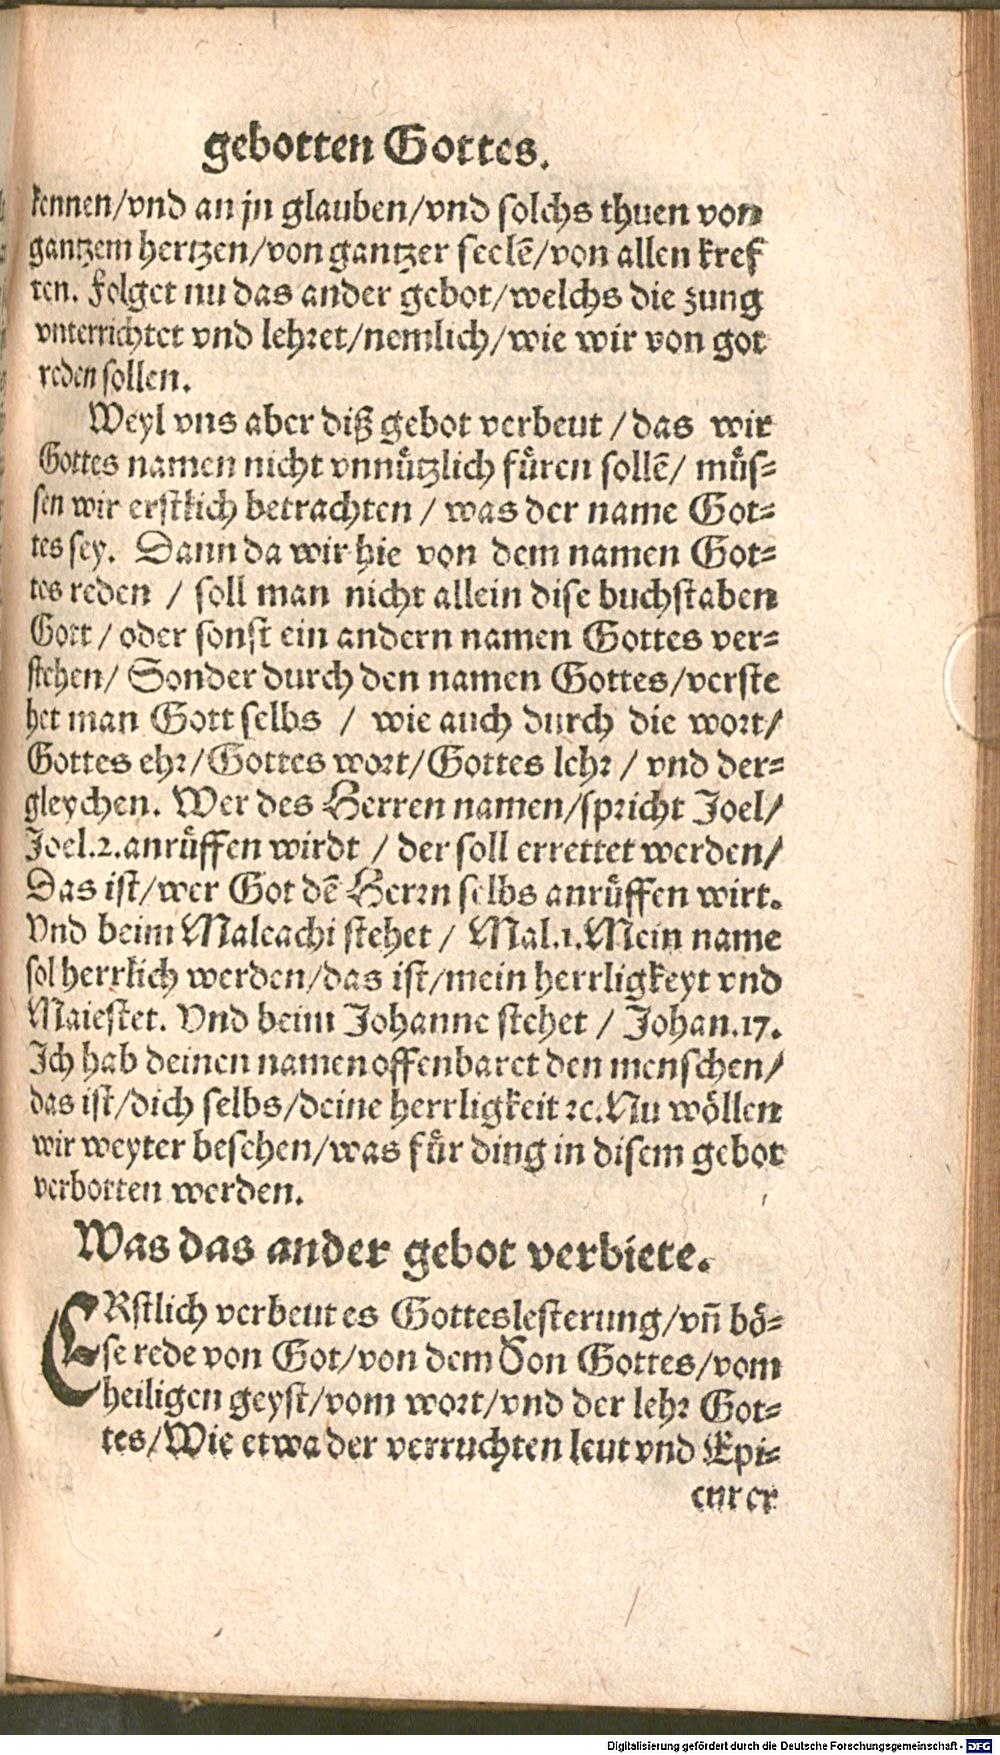 gebotten Gottes.
kennen/vnd an jn glauben/vnd solchs thuen von
gantzem hertzen/von gantzer seelē/von allen kref
ten. Folget nu das ander gebot/welchs die zung
vnterrichtet vnd lehret/nemlich/wie wir von got
reden sollen.
Weyl vns aber diß gebot verbeut / das wir
Gottes namen nicht vnnützlich füren sollē/ müs-
sen wir erstlich betrachten / was der name Got-
tes sey. Dann da wir hie von dem namen Got-
tes reden / soll man nicht allein dise buchstaben
Gott / oder sonst ein andern namen Gottes ver-
stehen/ Sonder durch den namen Gottes/verste
het man Gott selbs / wie auch durch die wort/
Gottes ehr/Gottes wort/Gottes lehr / vnd der-
gleychen. Wer des Herren namen/spricht Joel/
Joel.2.anrüffen wirdt / der soll errettet werden/
Das ist/wer Got dē Herrn selbs anrüffen wirt.
Vnd beim Maleachi stehet / Mal.1.Mein name
sol herrlich werden/das ist/mein herrligkeyt vnd
Maiestet. Vnd beim Johanne stehet / Johan.17.
Ich hab deinen namen offenbaret den menschen/
das ist/dich selbs/deine herrligkeit ꝛc.Nu wöllen
wir weyter besehen/was für ding in disem gebot
verbotten werden.
Was das ander gebot verbiete.
ERstlich verbeut es Gotteslesterung/vñ bö-
se rede von Got/von dem Son Gottes/vom
heiligen geyst/vom wort/vnd der lehr Got-
tes/Wie etwa der verruchten leut vnd Epi-
curer
Digitalisierung gefördert durch die Deutsche Forschungsgemeinschaft - DFG